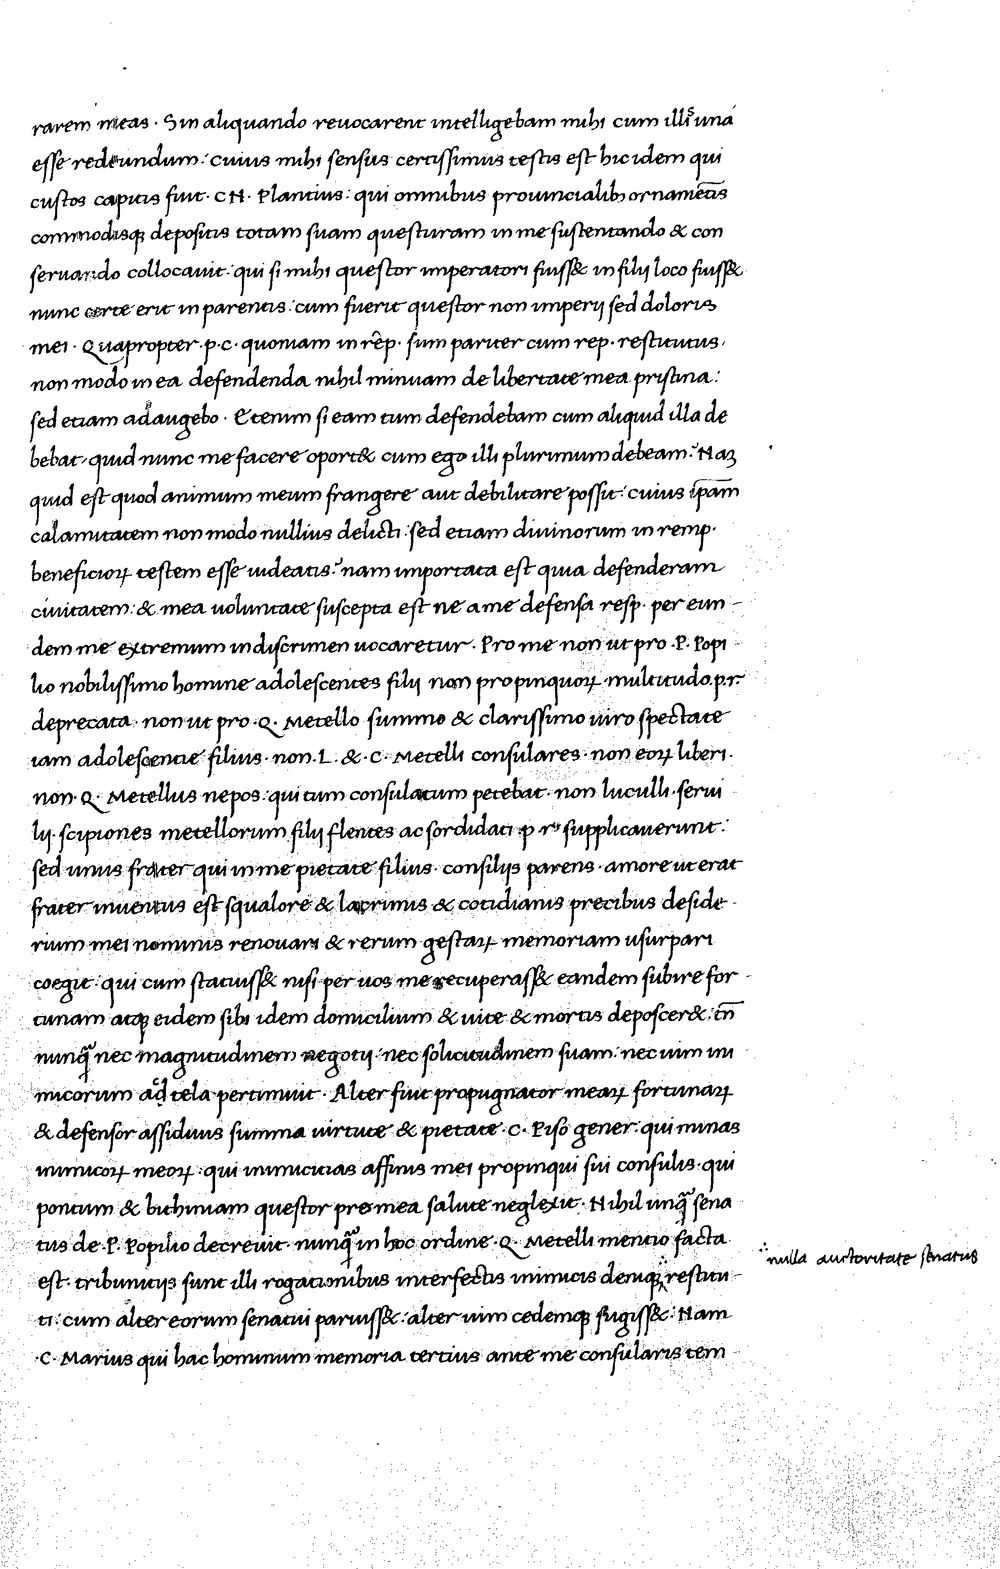 rarem meas · Sin aliquando reuocarent intelligebam mihi cum illis una
esse redeundum : cuius mihi sensus certissimus testis est hic idem qui
custos capitis fuit · CN · Plantius : qui omnibus prouincialib; ornametis
commodisq; depositis totam suam questuram in me sustentando & con
seruando collocauit : qui si mihi questor imperatori fuiss& in filij loco fuiss&
nunc certe erit in parentis : cum fuerit questor non imperij sed doloris
mei · Quapropter · p · c · quoniam in rēp · sum pariter cum rep · restitutus ·
non modo in ea defendenda nihil minuam de libertate mea pristina :
sed etiam adaugebo · Etenim si eam tum defendebam cum aliquid illa de
bebat , quid nunc me facere oport& cum ego illi plurimum debeam : Naꝫ
quid est quod animum meum frangere aut debilitare possit : cuius ip̄am
calamitatem non modo nullius delicti : sed etiam diuinorum in remp ·
beneficioꝝ testem esse uideatis : nam importata est quia defenderam
ciuitatem : & mea uoluntate suscepta est ne a me defensa resp · per eun
dem me extremum in discrimen uocaretur · Pro me non ut pro · P · Popi
lio nobilissimo homine adolescentes filij non propinquoꝝ multitudo · p · r ·
deprecata · non ut pro · Q · Metello summo & clarissimo uiro spectate
iam adolescentie filius · non · L · & · C · Metelli consulares · non eoꝝ liberi ·
non · Q · Metellus nepos : qui tum consulatum petebat · non luculli · serui
lij · scipiones metellorum filij flentes ac sordidati · p · r · supplicauerunt :
sed unus frater qui in me pietate filius · consilijs parens · amore ut erat
frater inuentus est squalore & lacrimis & cotidianis precibus deside
rium mei nominis renouari & rerum gestaꝝ memoriam usurpari
coegit : qui cum statuiss& nisi per uos me recuperass& eandem subire for
tunam atq; eidem sibi idem domicilium & uite & mortis deposcer& : tn̄
nunq̃ nec magnitudinem negotij : nec solicitudinem suam : nec uim ini
micorum ac tela pertimuit · Alter fuit propugnator meaꝝ fortunaꝝ
& defensor assiduus summa uirtute & pietate · C · Piso gener · qui minas
inimicoꝝ meoꝝ : qui inimicitias affinis mei propinqui sui consulis · qui
pontum & bithiniam questor pro mea salute neglexit · Nihil unq̃ sena
tus de · P · Popilio decreuit · nunq̃ in hoc ordine · Q · Metelli mentio facta
est · tribunitijs sunt illi rogationibus interfectis inimicis deniq; restitu
nulla auctoritate senatus
ti : cum alter eorum senatui paruiss& : alter uim cedemq; fugiss& : Nam
· C · Marius qui hac hominum memoria tertius ante me consularis tem